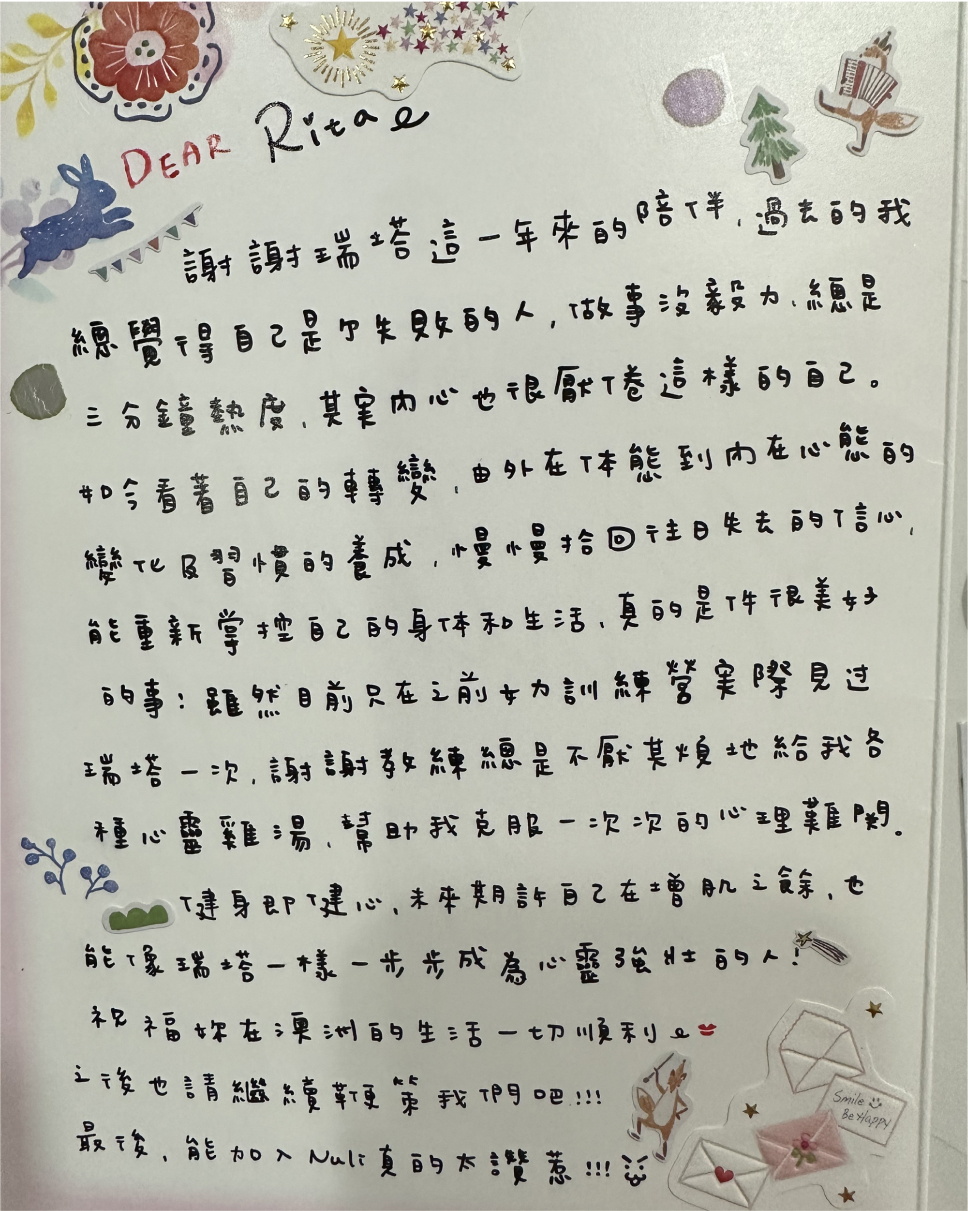 DEAR Ritae
謝謝瑞塔這一年來的陪伴，過去的我
總覺得自己是個失敗的人，做事沒毅力、總是
三分鐘熱度，其実內心也很厭倦這樣的自己。
如今看著自己的轉變，由外在体態到內在心態的
變化及習慣的養成，慢慢拾回往日失去的信心，
能重新掌控自己的身体和生活，真的是件很美好
的事！雖然目前只在之前女力訓練營実際見过
瑞塔一次，謝謝教練總是不厭其煩地給我各
種心靈雞湯，幫助我克服一次次的心理難関。
健身即健心，未來期許自己在增肌之餘，也
能像瑞塔一樣一步步成為心靈強壯的人！
祝福妳在澳洲的生活一切順利
之後也請繼續鞭策我們吧！！！
最後，能加入Nuli真的太讚惹！！！
Smile
Be Happy